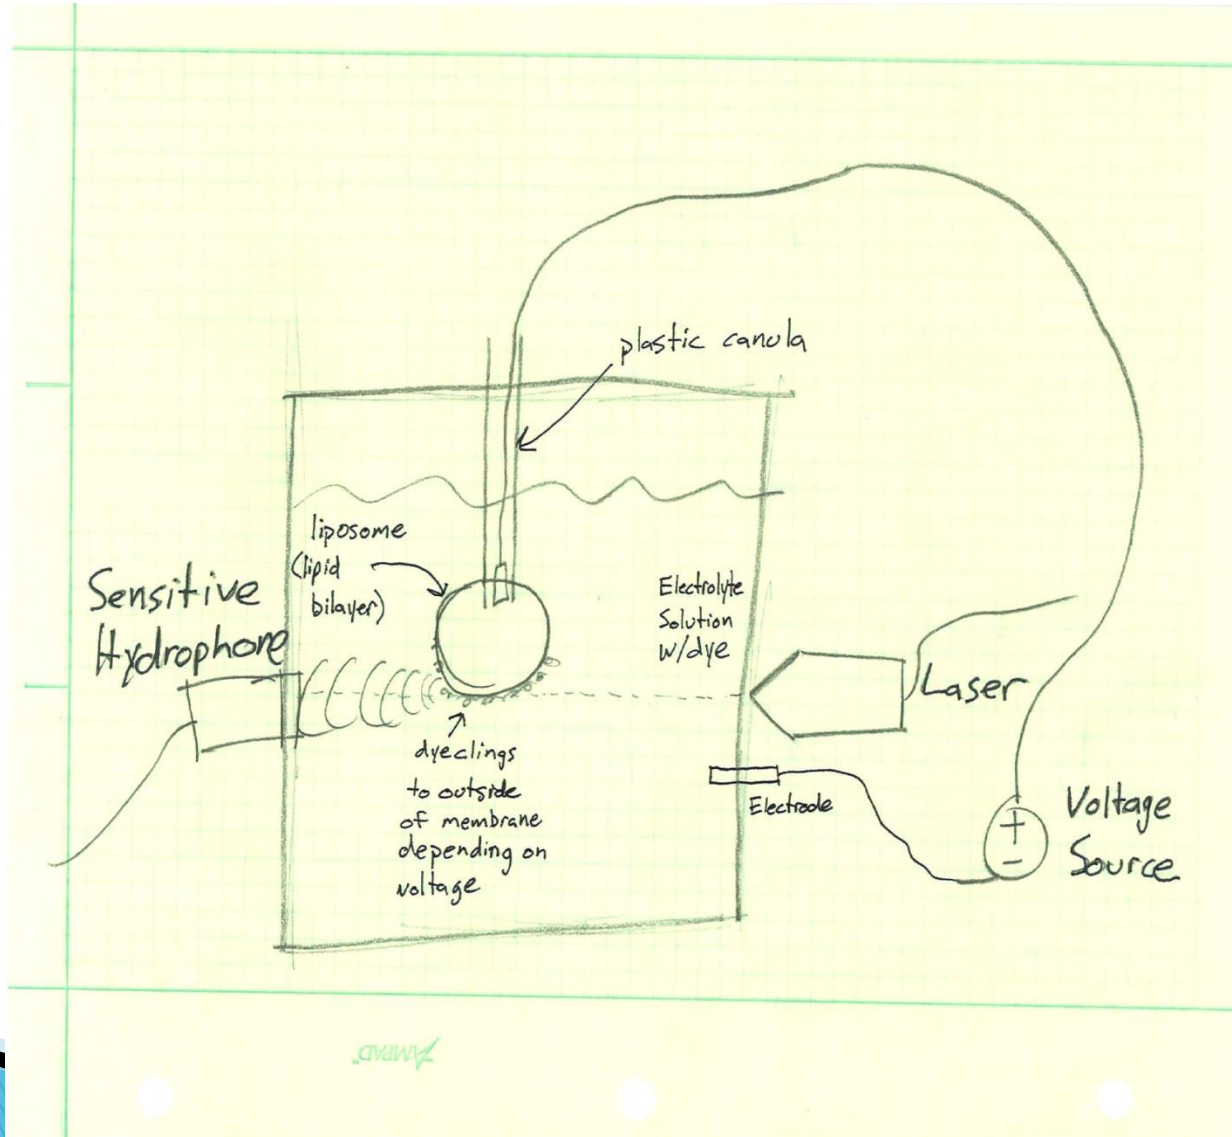 plastic canula
liposome
(lipid
bilayer)
Sensitive
Hydrophone
Electrolyte
Solution
w/dye
Laser
dye clings
to outside
of membrane
depending on
voltage
Electrode
Voltage
Source
+
-
AMPAD